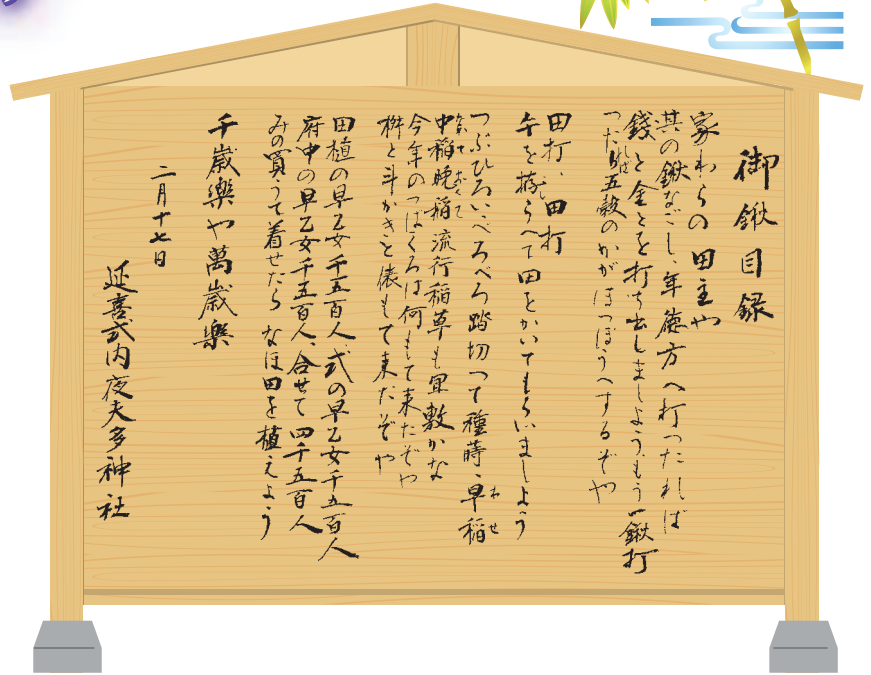 御鍬目録
家わらの田主や
其の鍬なごし、年徳方へ打つたれば
銭と金とを打ち出しましようもう一鍬打
つたれば五穀のかがほつぼうへするぞや
田打、田打
牛を撈らへて田をかいてもらいましよう
つぶひろいべろべろ踏切つて種蒔、早稲わせ
中稲なかて晩稲おくて流行稲草も宜敷かな
今年のつばくろは何もて来たぞや
桝と斗かきと俵もて来たぞや
田植の早乙女千五百人、弍の早乙女千五百人
府中の早乙女千五百人、合せて四千五百人
みの買うて着せたら なほ田を植えよう
千歳楽や萬歳楽
二月十七日
延喜式内夜夫多神社